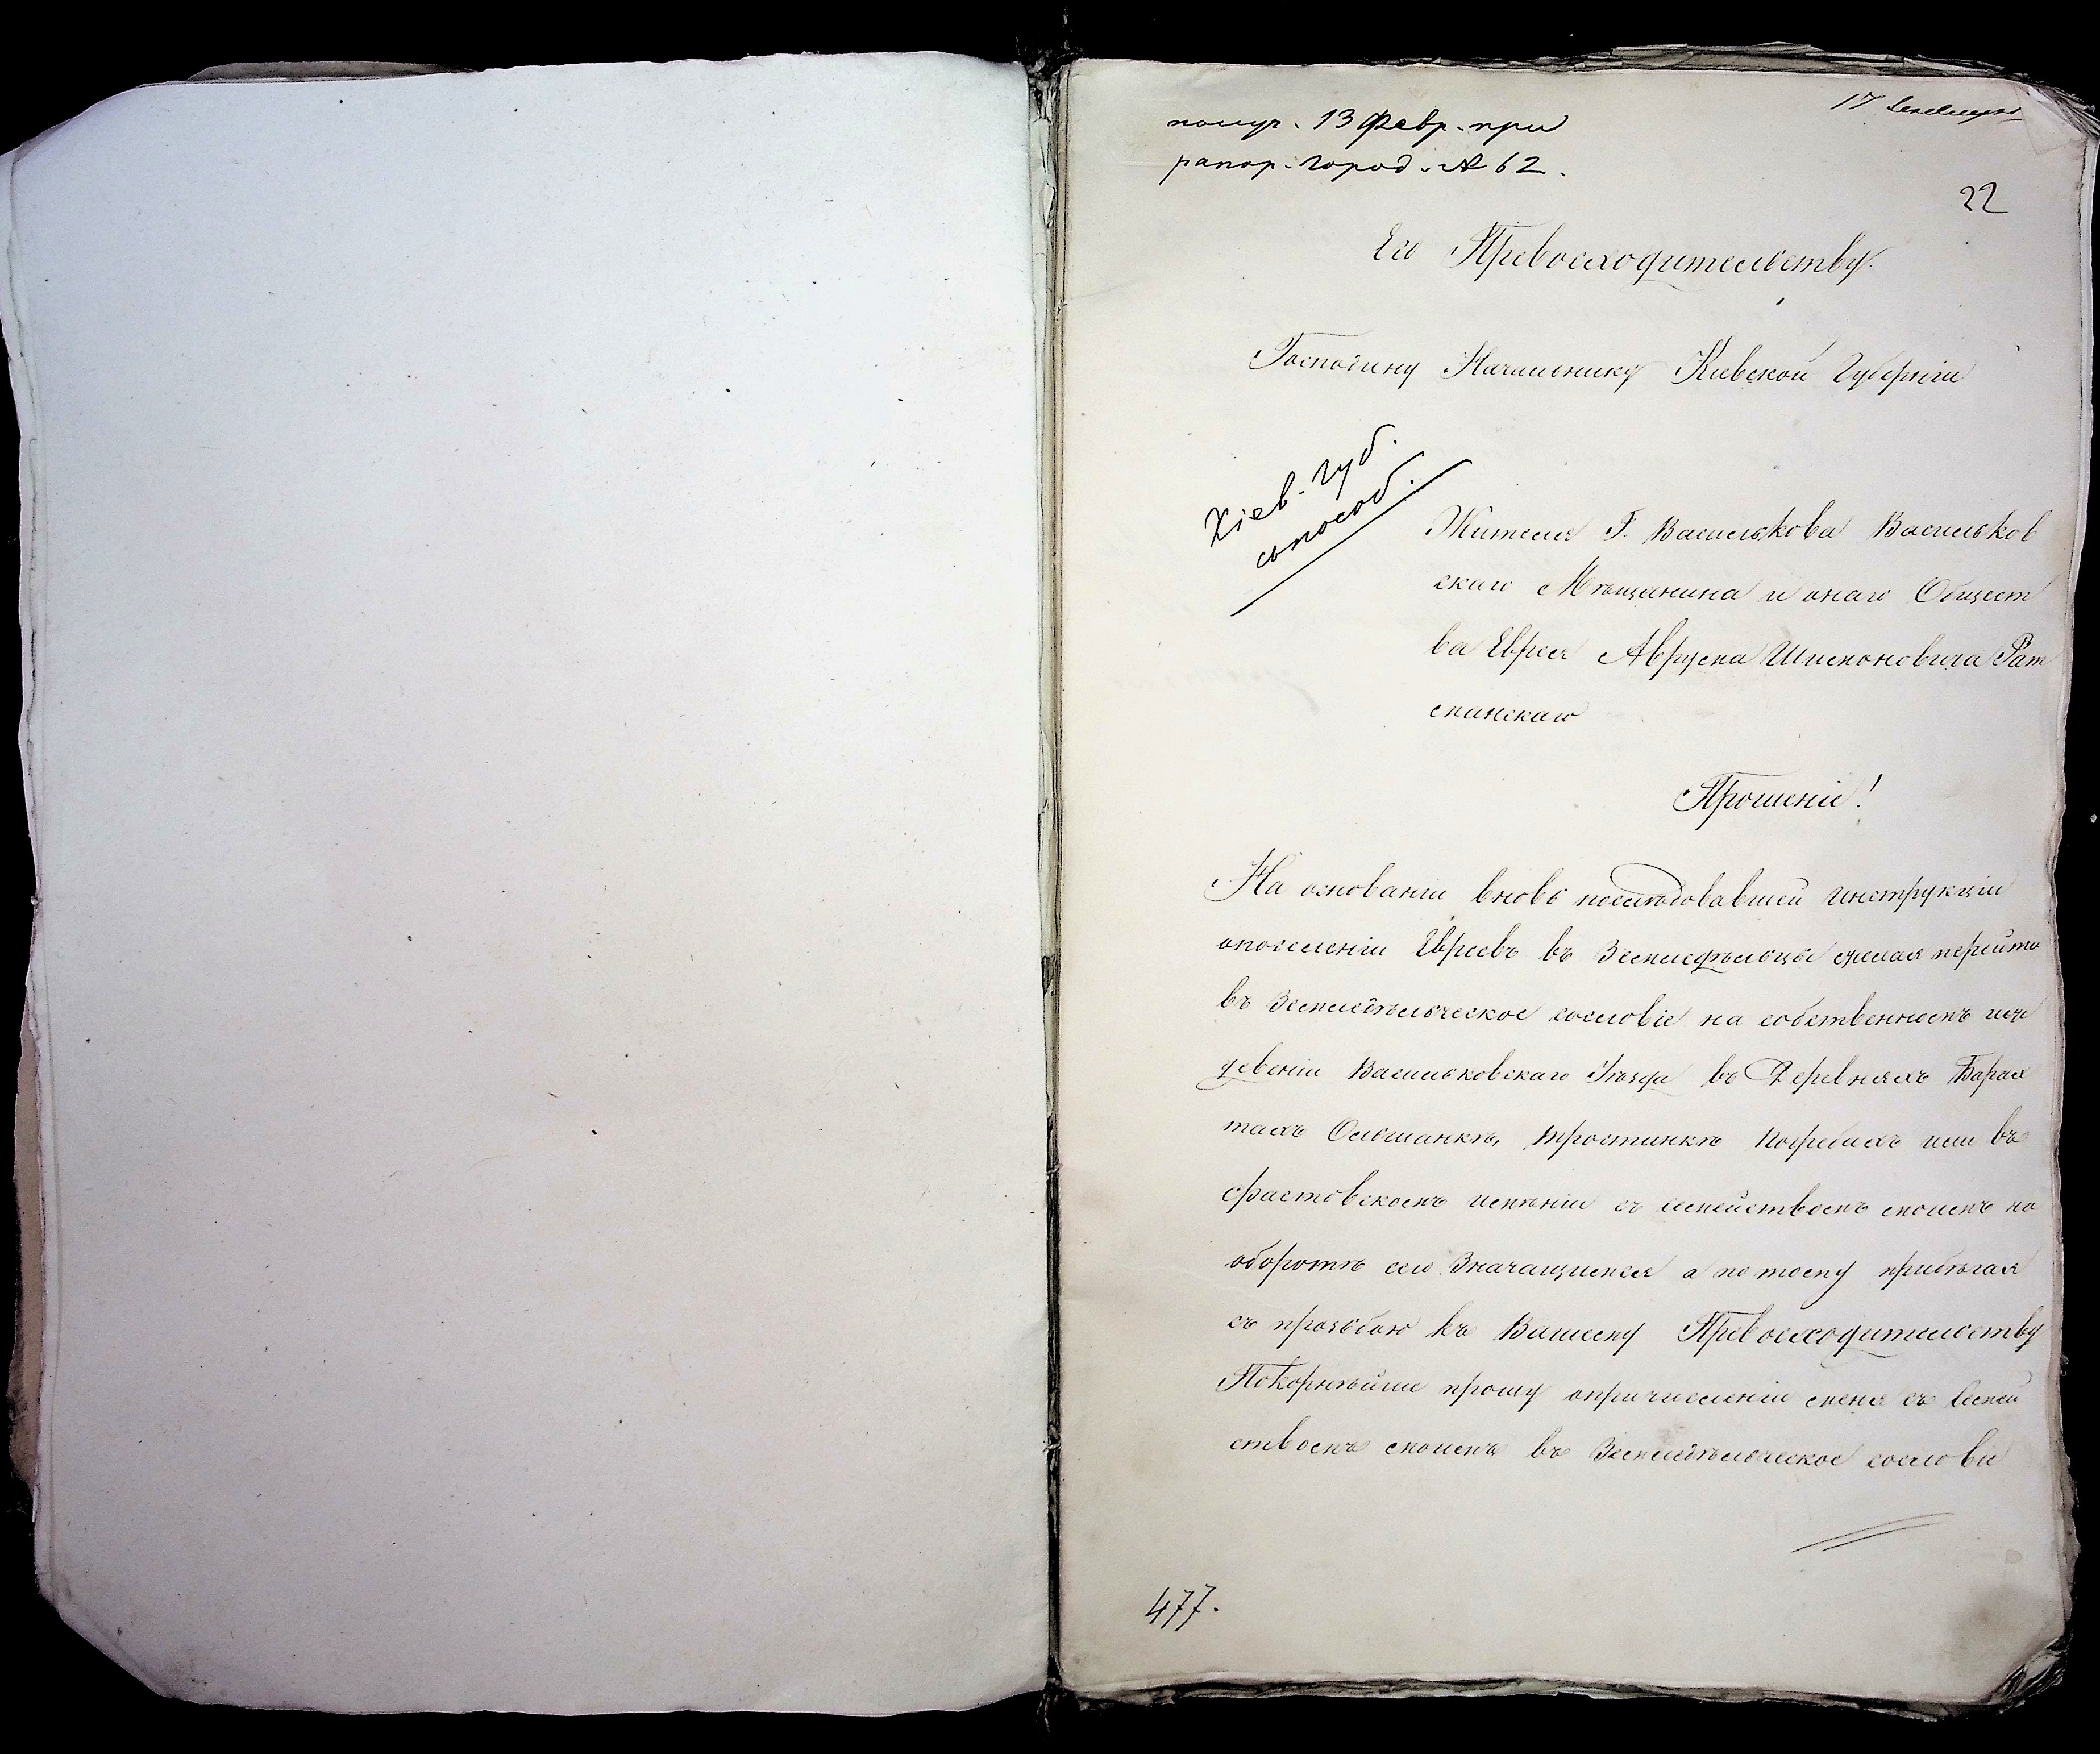 получ. 13 Февр. при
рапор. город. № 62.
17
22
Его Превосходительству.
Господину Начальнику Кіевской Губерніи
Кіев. Губ.
Жителя Г. Василькова Васильков
скаго Мѣщанина и онаго Общест
ва Еврея Аврума Шимоновича Рат
манскаго
Прошеніе!
На основаніи вновь последовавшей инструкціи
опоселеніи Евреевъ въ Земледѣльцы желая перейти
въ Земледѣльческое сословіе на собственномъ ижи
девеніи Васильковскаго Уѣзда въ Деревняхъ Барах
тахъ Ольшанкѣ, тростинкѣ Погребахъ или въ
фастовскомъ имѣніи съ семействомъ моимъ на
оборотѣ сего Значащимся а потому прибѣгая
съ прозьбою къ Вашему Превосходительству
Покорнѣйше прошу опричисленіи меня съ Семей
ствомъ моимъ въ Земледѣльческое сословіе
477.